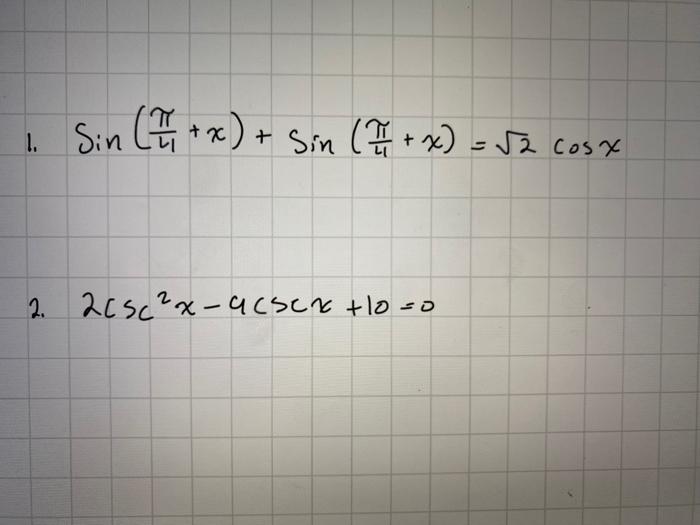 1. Sin (π/4 + x) + Sin (π/4 + x) = √2 cos x
2. 2csc²x - 9cscx + 10 = 0